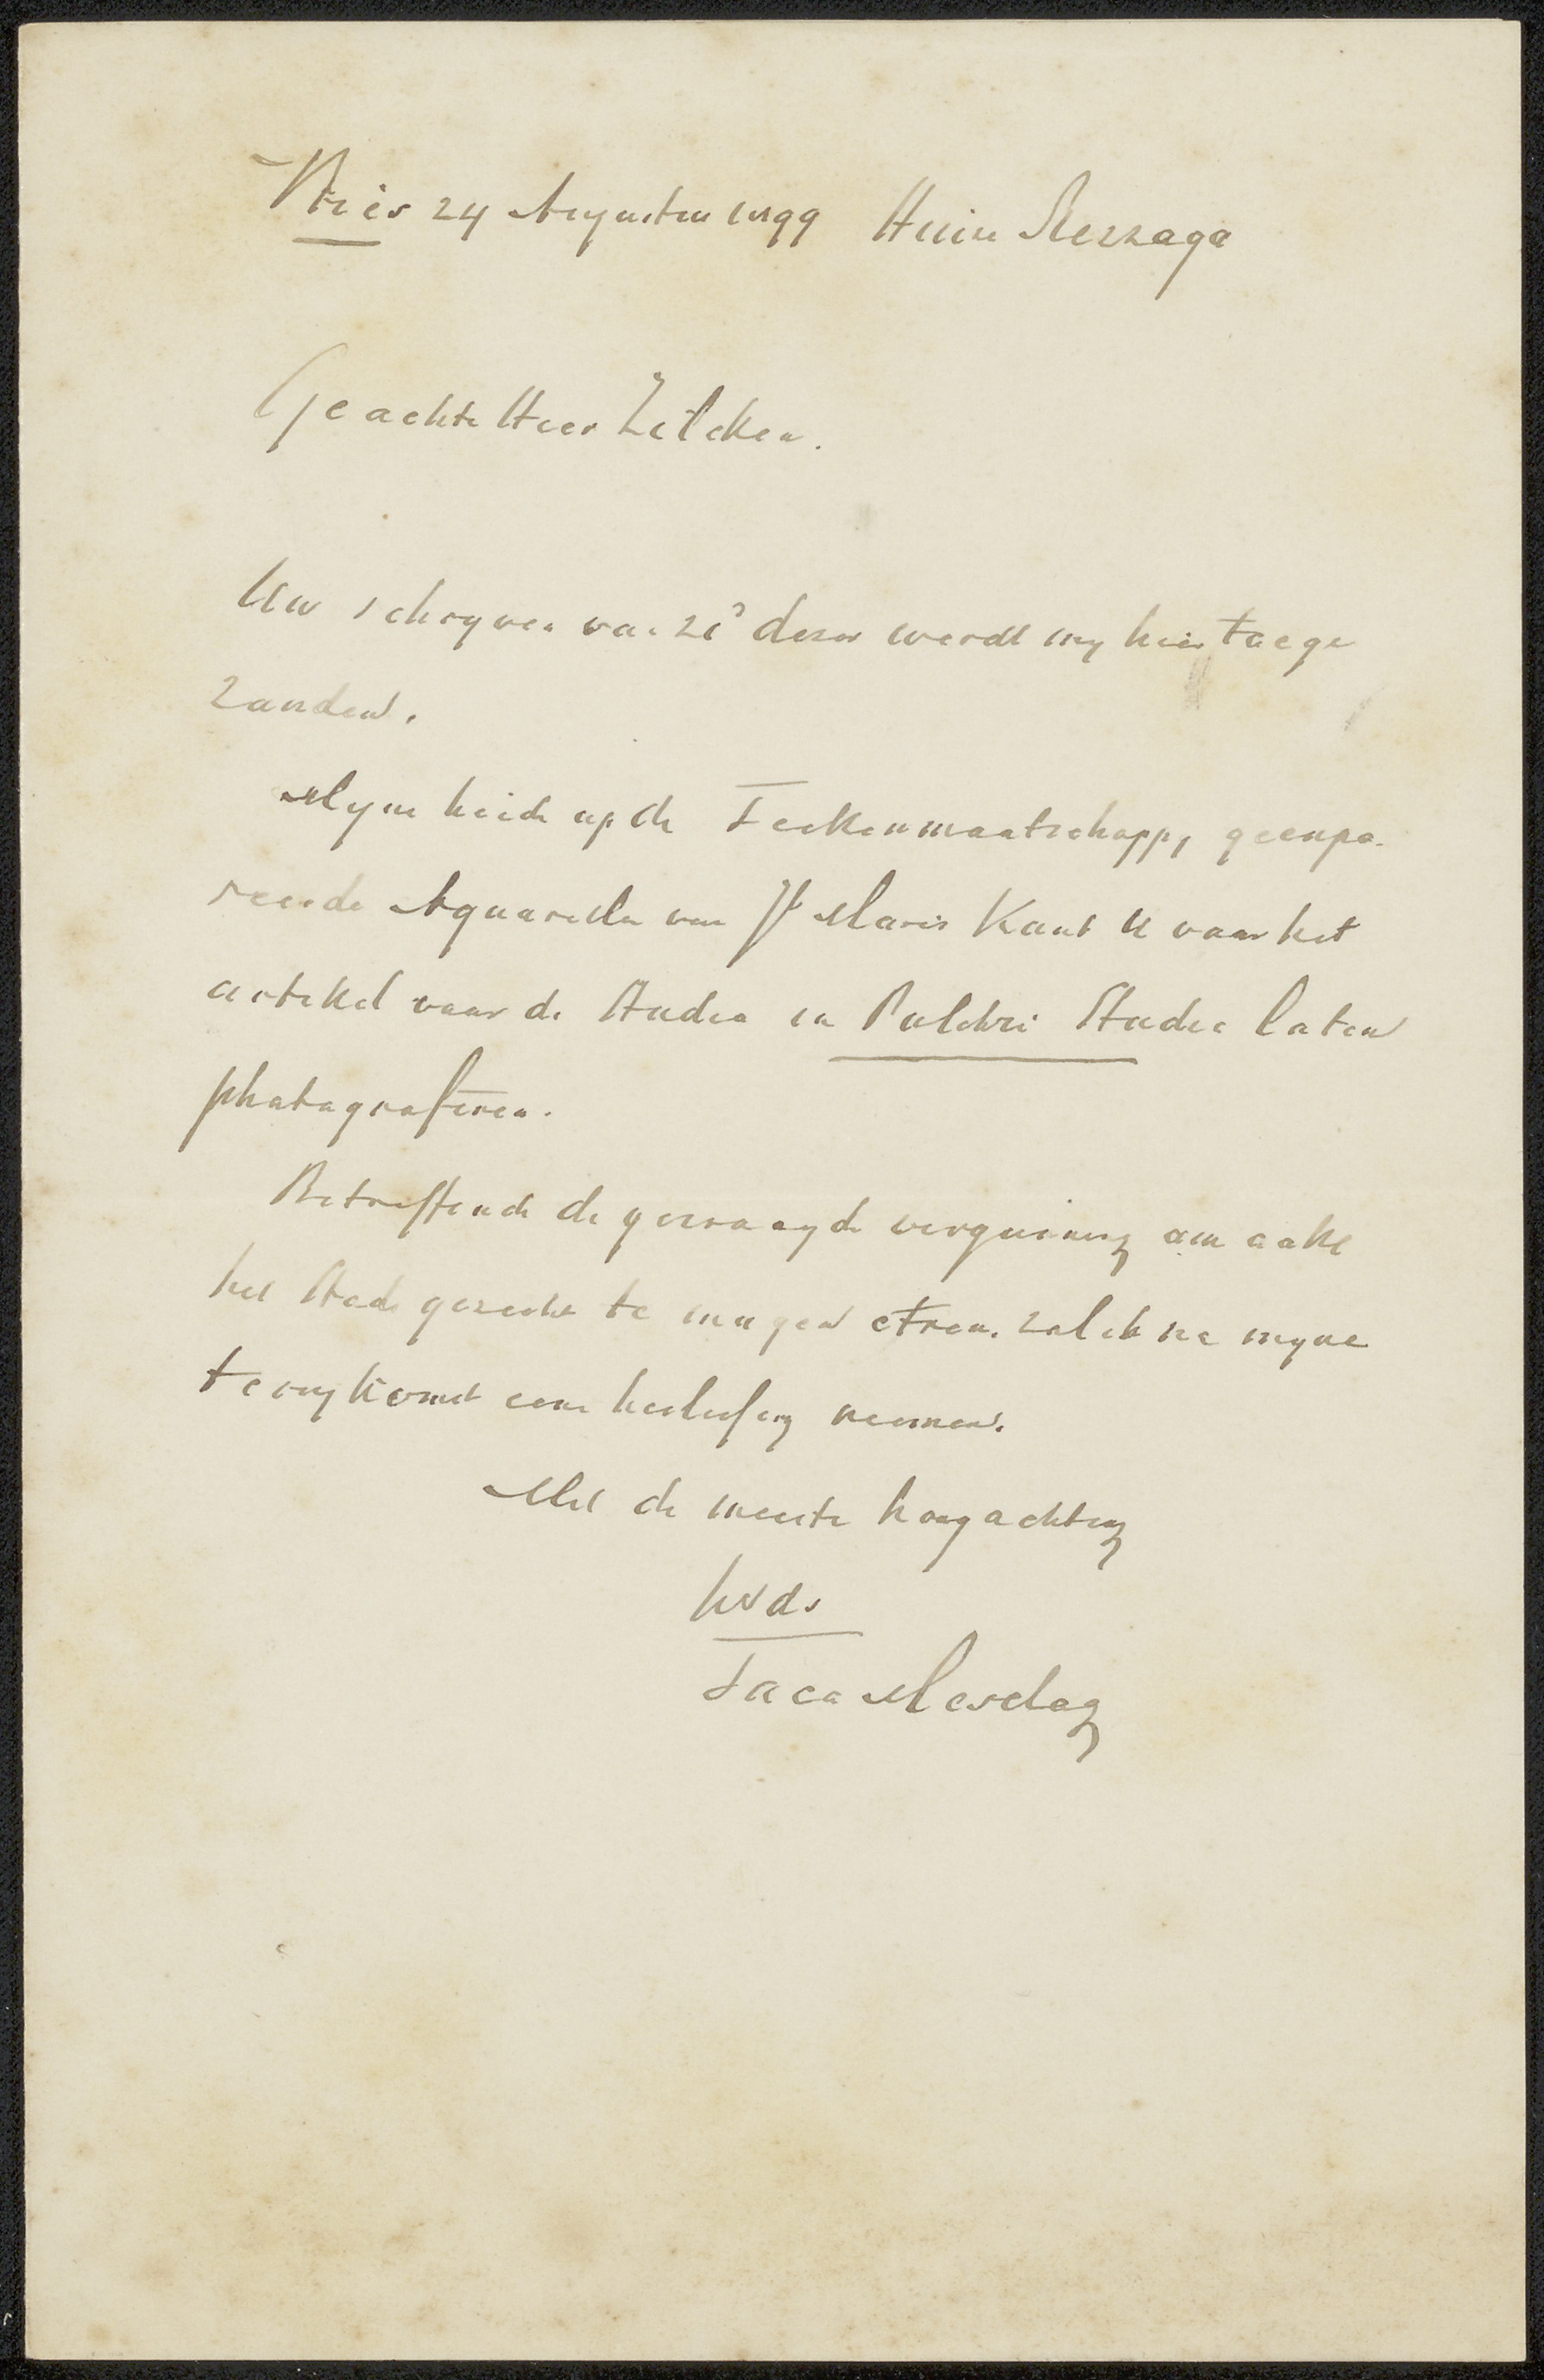 Vries 24 Augustus 1899 Huize
Geachte Heer Zilcken.
Uw schryven van dezer werdt my hier toege
zonden.
Myne beide op de Teekenmaatschappy geexpo-
seerde Aquarellen van J Maris kunt U voor het
artikel voor de Studio in Pulchri Studio laten
photografeeren.
Betreffende de gevraagde vergunning om ook
het Stads gezicht te mogen etsen. zal ik na myne
terugkomst eene beslissing nemen.
Met de meeste hoogachting
Taco Mesdag